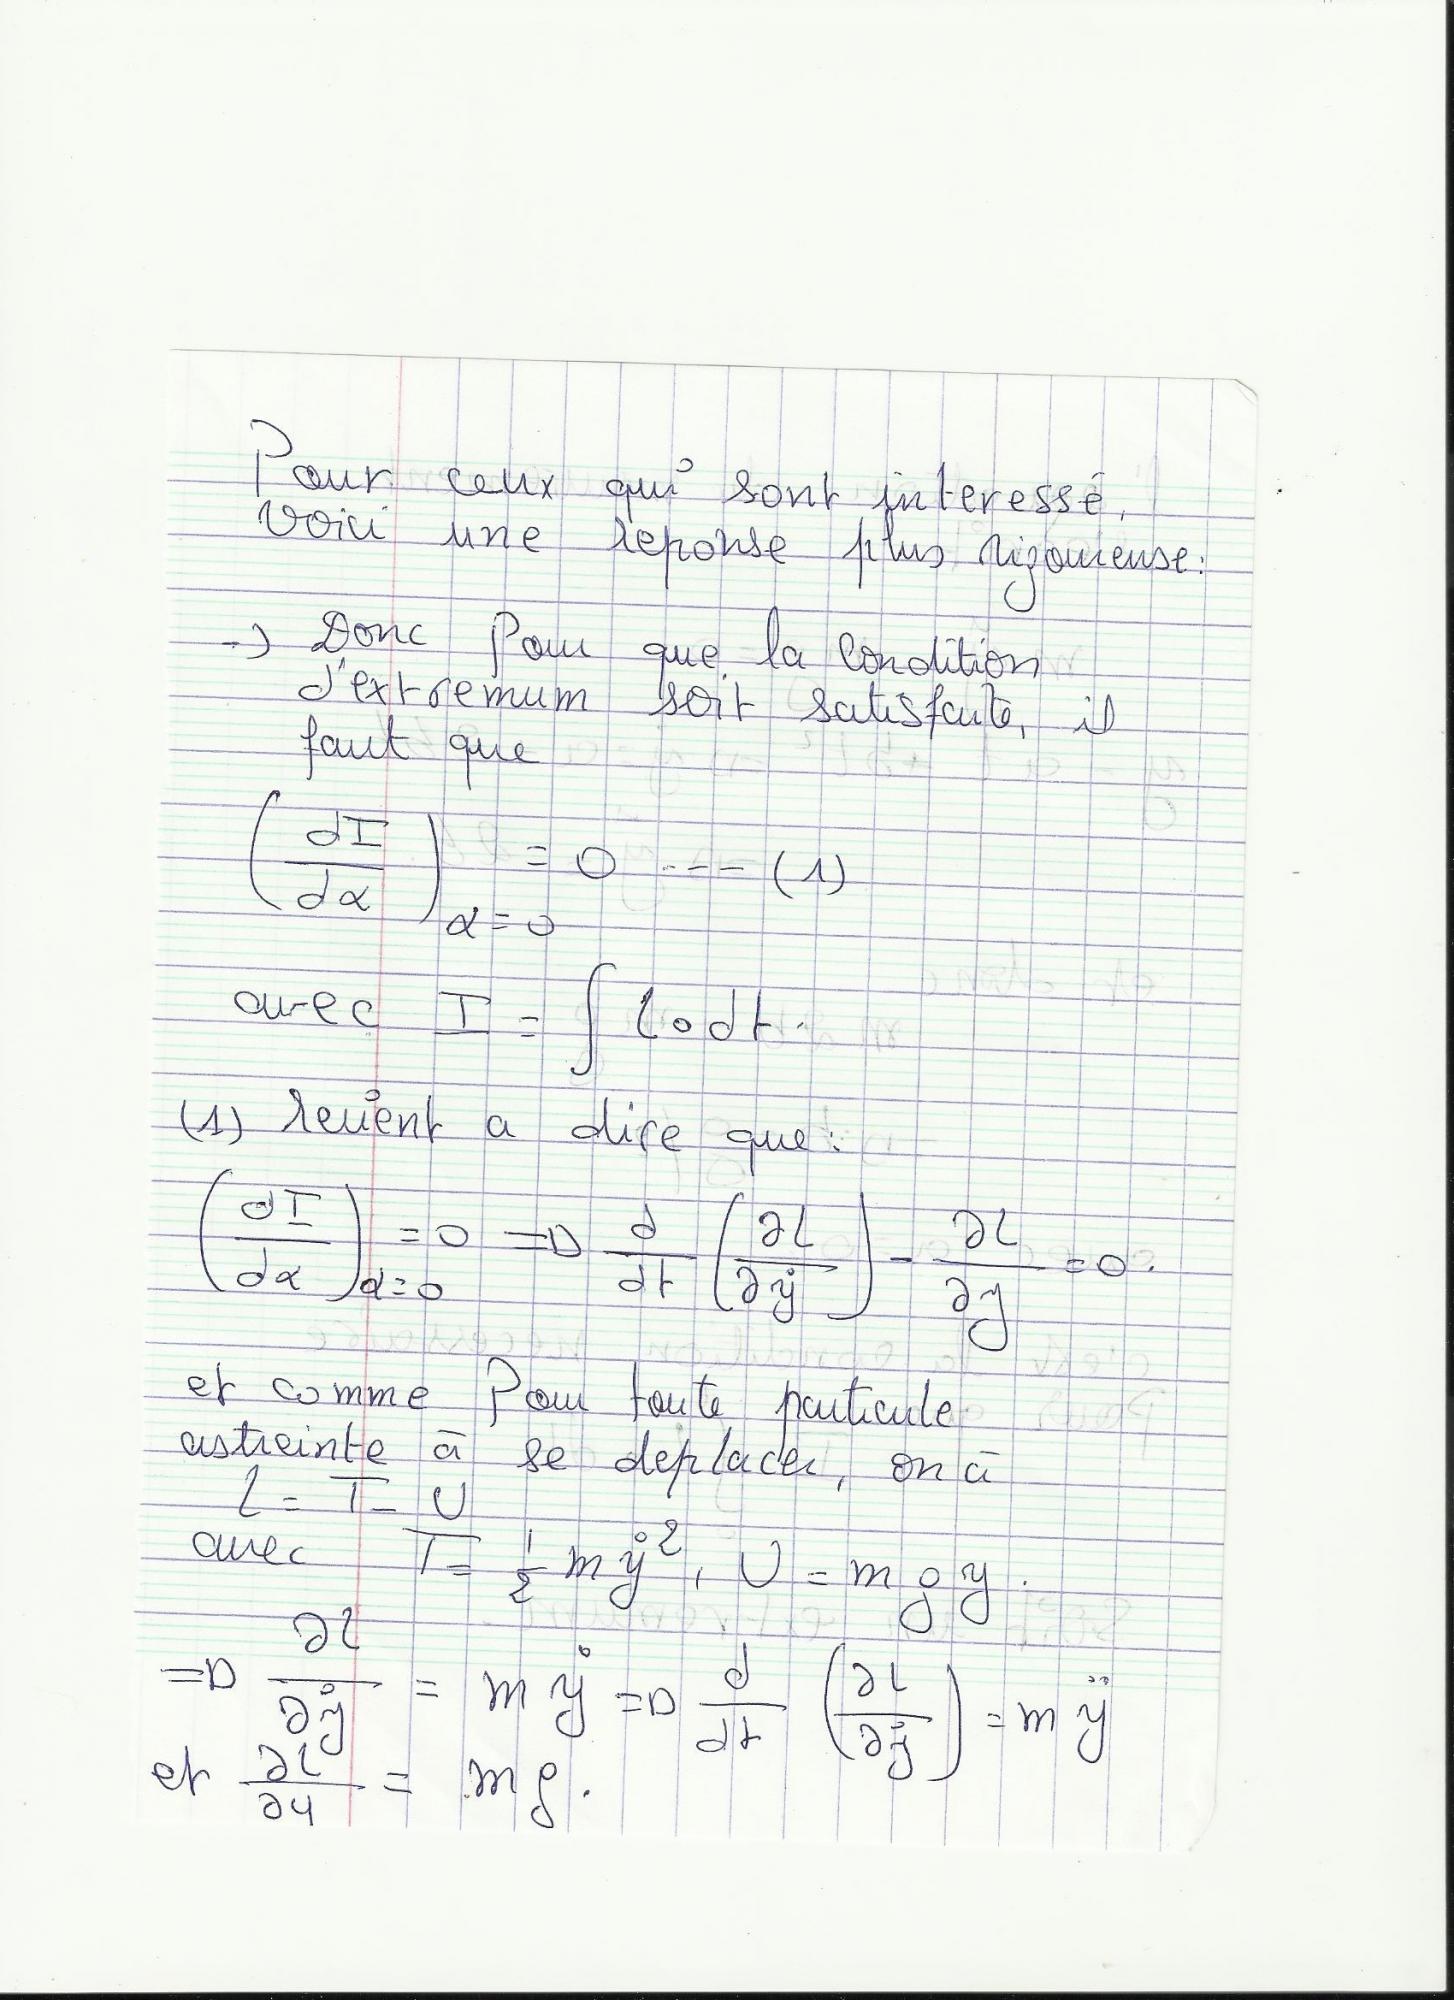 Pour ceux qui sont interessé,
voici une reponse plus rigourense:
-> Donc pour que la condition
d'extremum soit satisfaite, il
faut que
(dI/dα)α=0 = 0 --- (1)
avec I = ∫ L o dt.
(1) revient a dire que:
(dI/dα)α=0 = 0 => d/dt (∂L/∂ẏ) - ∂L/∂y = 0.
et comme pour toute particule
astreinte à se deplacer, on à
L = T - U
avec T = 1/2 m ẏ², U = m g y.
=> ∂L/∂ẏ = m ẏ => d/dt (∂L/∂ẏ) = m ÿ
et ∂L/∂y = m g.